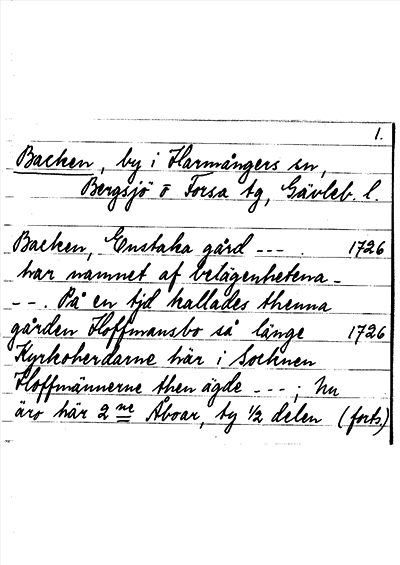 1.
Backen, by i Harmångers sn,
Bergsjö o Forsa tg, Gävleb. l.
Backen, Enstaka gård --- 1726
har namnet af belägenhetena -
--. På en tjd kallades thenna
gården Hoffmansbo så länge 1726
Kyrkoherdarne här i Sochnen
Hoffmännerne then ägde ---; Nu
äro här 2 ne Åboar, ty 1/2 delen (forts.)